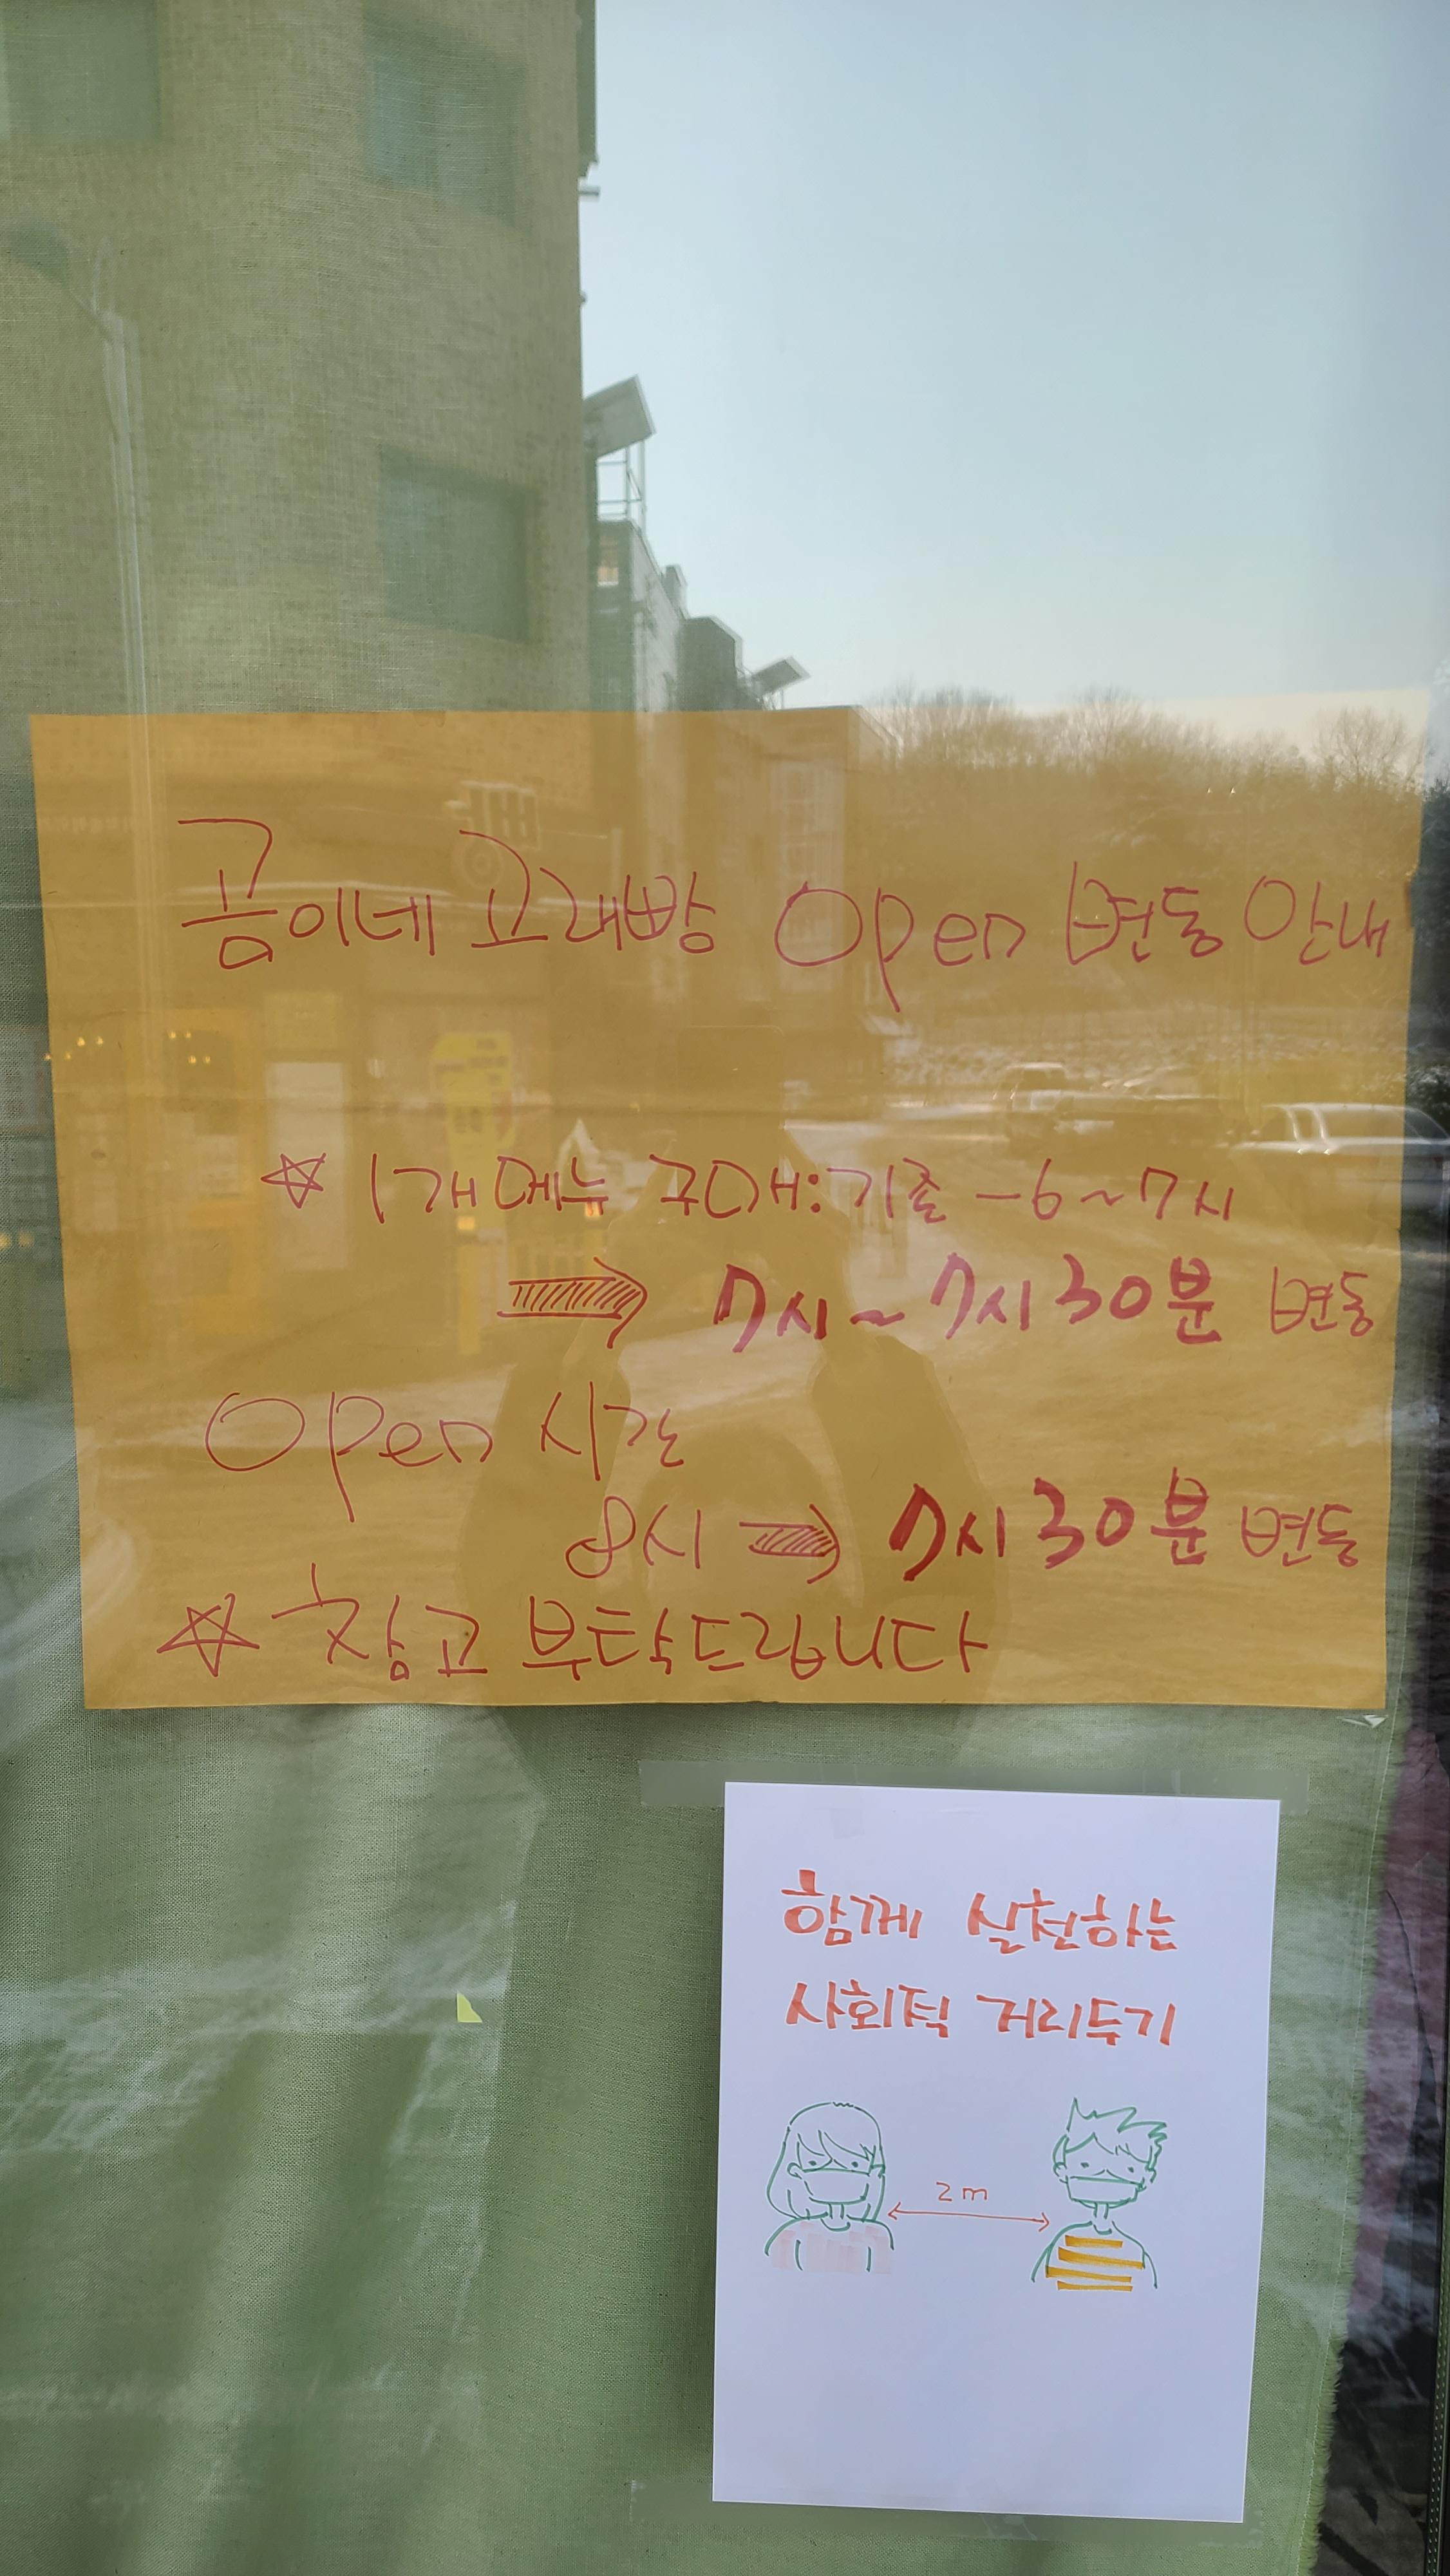 곰이네 고래빵 Open 변동 안내
☆ 1개 메뉴 구매: 기존 - 6~7시
⇒ 7시~7시30분 변동
Open 시간
8시 ⇒ 7시30분 변동
☆ 참고 부탁드립니다
함께 실천하는
사회적 거리두기
2m